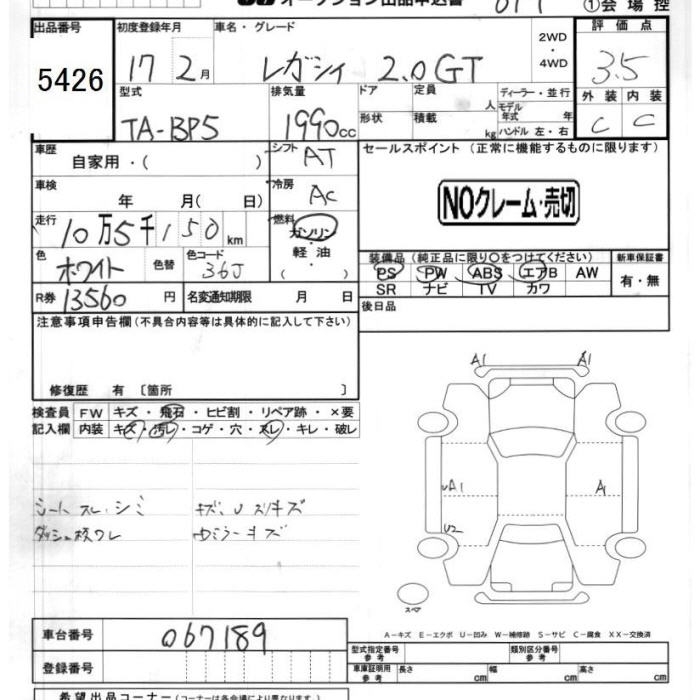 オークション出品申込書
①会場控
出品番号 初度登録年月 車名・グレード 評価点
5426 17 2月 レガシィ 2.0GT 2WD・4WD 3.5
型式 排気量 ドア 定員 人 ディーラー・並行 外装 内装
TA-BP5 1990cc 形状 積載 kg モデル年式 年 ハンドル 左・右 C C
車歴 自家用・( ) シフト AT セールスポイント (正常に機能するものに限ります)
車検 年 月( 日) 冷房 AC NOクレーム・売切
走行 10万5千150km 燃料 ガソリン・軽油・( )
色 ホワイト 色替 色コード 36J
装備品 (純正品に限り○をつけてください) 新車保証書
PS PW ABS エアB AW 有・無
SR ナビ TV カワ
R券 13560円 名変通知期限 月 日 後日品
注意事項申告欄(不具合内容等は具体的に記入して下さい)
修復歴 有 〔箇所 〕
検査員 FW キズ・飛石・ヒビ割・リペア跡・×要
記入欄 内装 キズ・汚レ・コゲ・穴・スレ・キレ・破レ
シートスレ、シミ キズ、U スリキズ
ダッシュ校ワレ
A1 A1
A1 A1
U2
スペア
A-キズ E-エクボ U-凹み W-補修跡 S-サビ C-腐食 XX-交換済
車台番号 067189
登録番号
型式指定番号 参考 類別区分番号 参考
車庫証明用 参考 長さ cm 幅 cm 高さ cm
希望出品コーナー(コーナーは各会場により異なります)